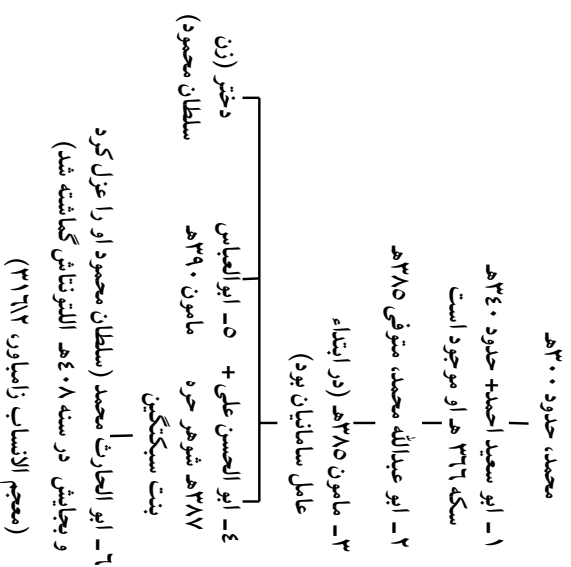 محمد، حدود ۳۰۰هـ
۱ ـ ابو سعید احمد+ حدود ۳٤۰هـ
سکه ۳٦٦ هـ او موجود است
۲ ـ ابو عبدالله محمد، متوفی ۳۸۵هـ
۳ ـ مامون ۳۸۵هـ (در ابتداء
عامل سامانیان بود)
٤ ـ ابو الحسن علی +
۳۸۷هـ شوهر حره
بنت سبکتگین
۵ ـ ابوالعباس
مامون ۳۹۰هـ
دختر (زن
سلطان محمود)
٦ ـ ابو الحارث محمد (سلطان محمود او را عزل کرد
و بجایش در سنه ٤۰۸هـ التونتاش گماشته شد)
(معجم الانساب زامباور، ۳۱٦\۲)